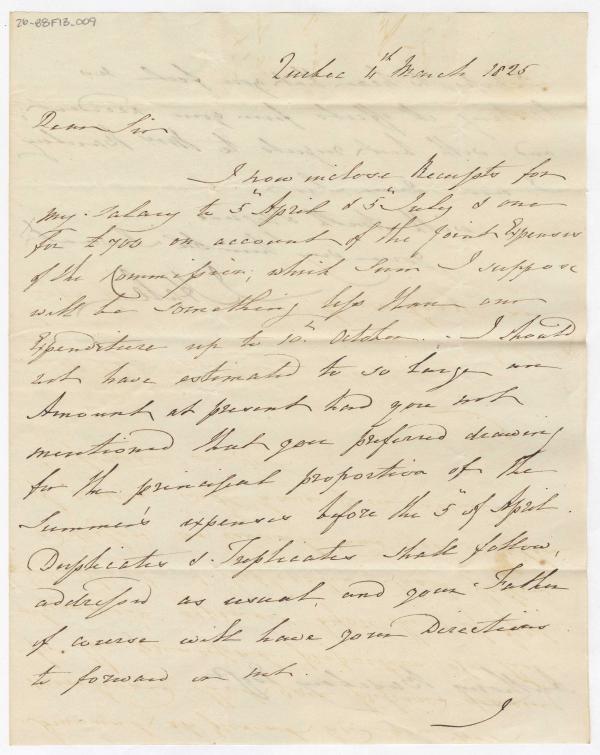 26-BBF13_009
Quebec 4th March 1825
Dear Sir
I now inclose Receipts for
my salary to 5th April & 5th July & one
for £700 on account of the Joint Expenses
of the Commission; which Sum I suppose
will be something less than our
Expenditure up to 10th October. - I should
not have estimated to so large an
Amount at present had you not
mentioned that you preferred drawing
for the principal proportion of the
Summer's expenses before the 5th of April.
Duplicates & Triplicates shall follow,
addressed as usual, and your Father
of course will have your Directions
to forward or not.
I